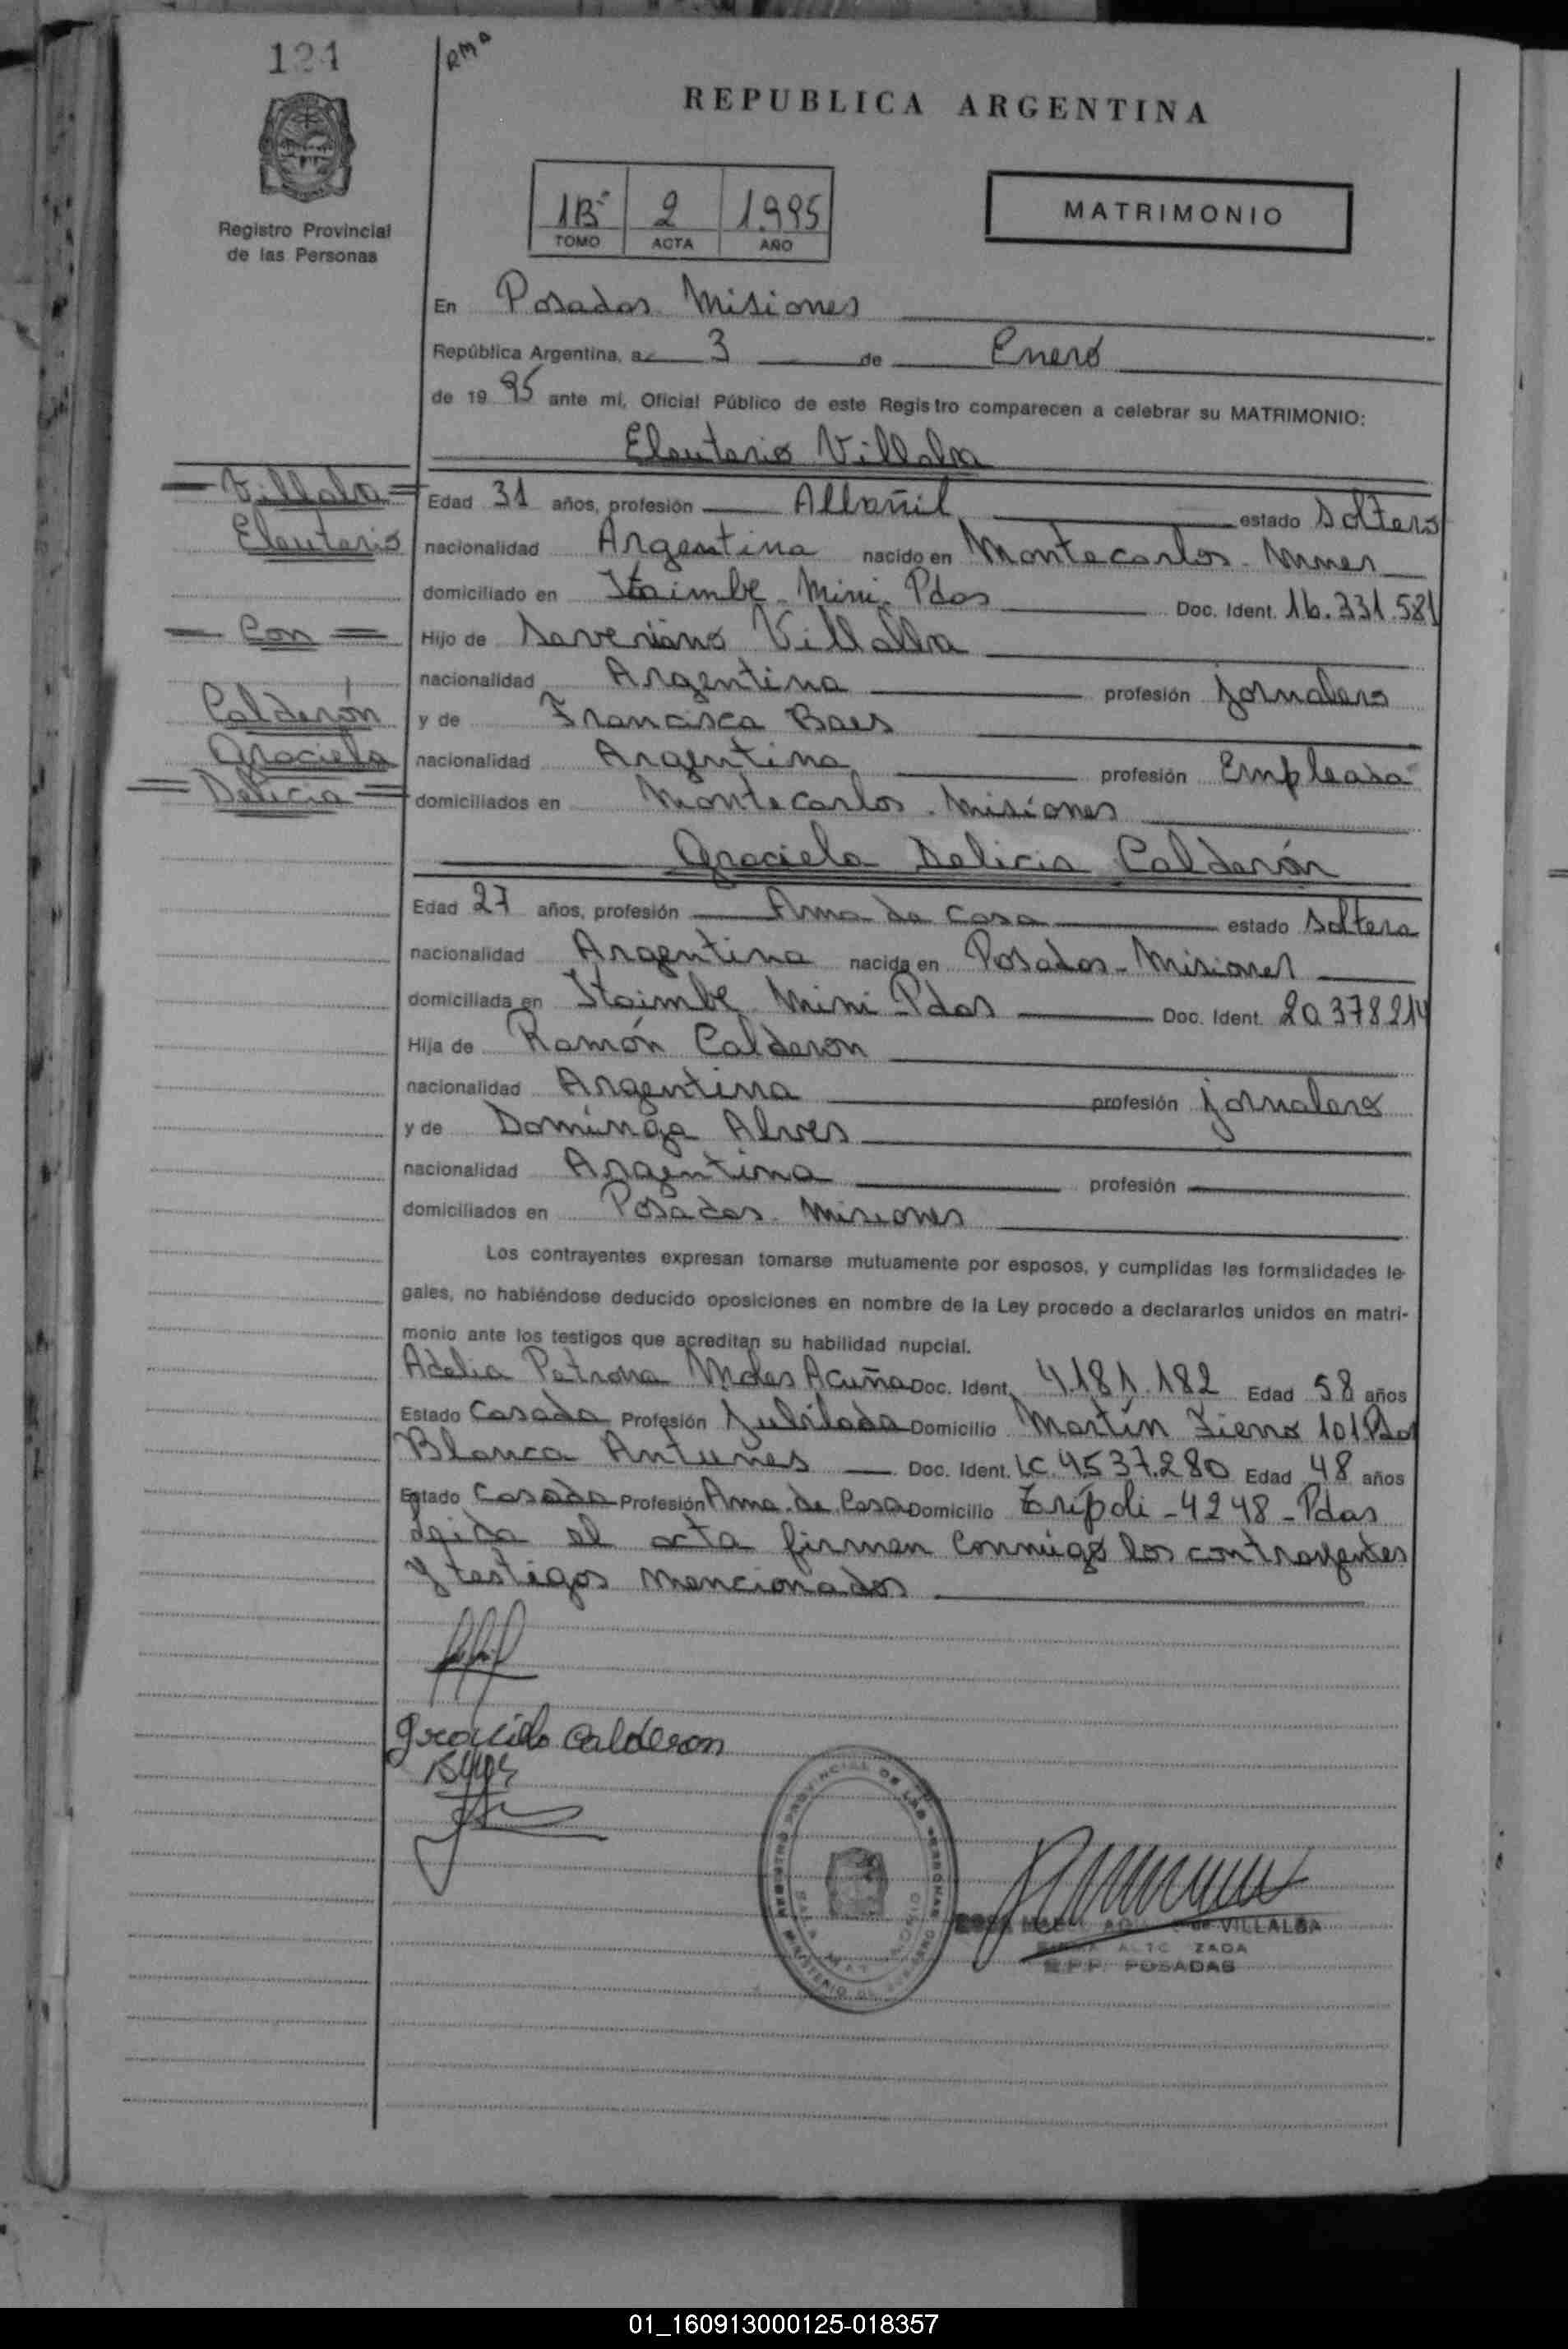 124
RMA
REPUBLICA ARGENTINA
Registro Provincial
de las Personas
1Bº 2 1.995
TOMO ACTA AÑO
MATRIMONIO
En Posadas Misiones
República Argentina, a 3 de Enero
de 19 95 ante mí, Oficial Público de este Registro comparecen a celebrar su MATRIMONIO:
Eleuterio Villalba
Villalba
Eleuterio
Con
Calderón
Graciela
Delicia
Edad 31 años, profesión Albañil estado Soltero
nacionalidad Argentina nacido en Montecarlos - Mnes
domiciliado en Itaimbe - Mini - Pdas Doc. Ident. 16.331.581
Hijo de Severiano Villalba
nacionalidad Argentina profesión jornalero
y de Francisca Baes
nacionalidad Argentina profesión Empleada
domiciliados en Montecarlos - Misiones
Graciela Delicia Calderón
Edad 27 años, profesión Ama de Casa estado Soltera
nacionalidad Argentina nacida en Posadas - Misiones
domiciliada en Itaimbe Mini - Pdas Doc. Ident. 20.378214
Hija de Ramón Calderon
nacionalidad Argentina profesión jornalero
y de Dominga Alves
nacionalidad Argentina profesión
domiciliados en Posadas - Misiones
Los contrayentes expresan tomarse mutuamente por esposos, y cumplidas las formalidades le-
gales, no habiéndose deducido oposiciones en nombre de la Ley procedo a declararlos unidos en matri-
monio ante los testigos que acreditan su habilidad nupcial.
Adelia Petrona Moles Acuña Doc. Ident. 4.181.182 Edad 58 años
Estado Casada Profesión Jubilada Domicilio Martín Fierro 101 Pdas
Blanca Antunes Doc. Ident. LC. 4.537.280 Edad 48 años
Estado Casada Profesión Ama de Casa Domicilio Trípoli - 4248 - Pdas
Leida el acta firman conmigo los contrayentes
y testigos mencionados
Graciela Calderon
REGISTRO PROVINCIAL DE LAS PERSONAS
VILLALBA
R.P.P. POSADAS
01_160913000125-018357